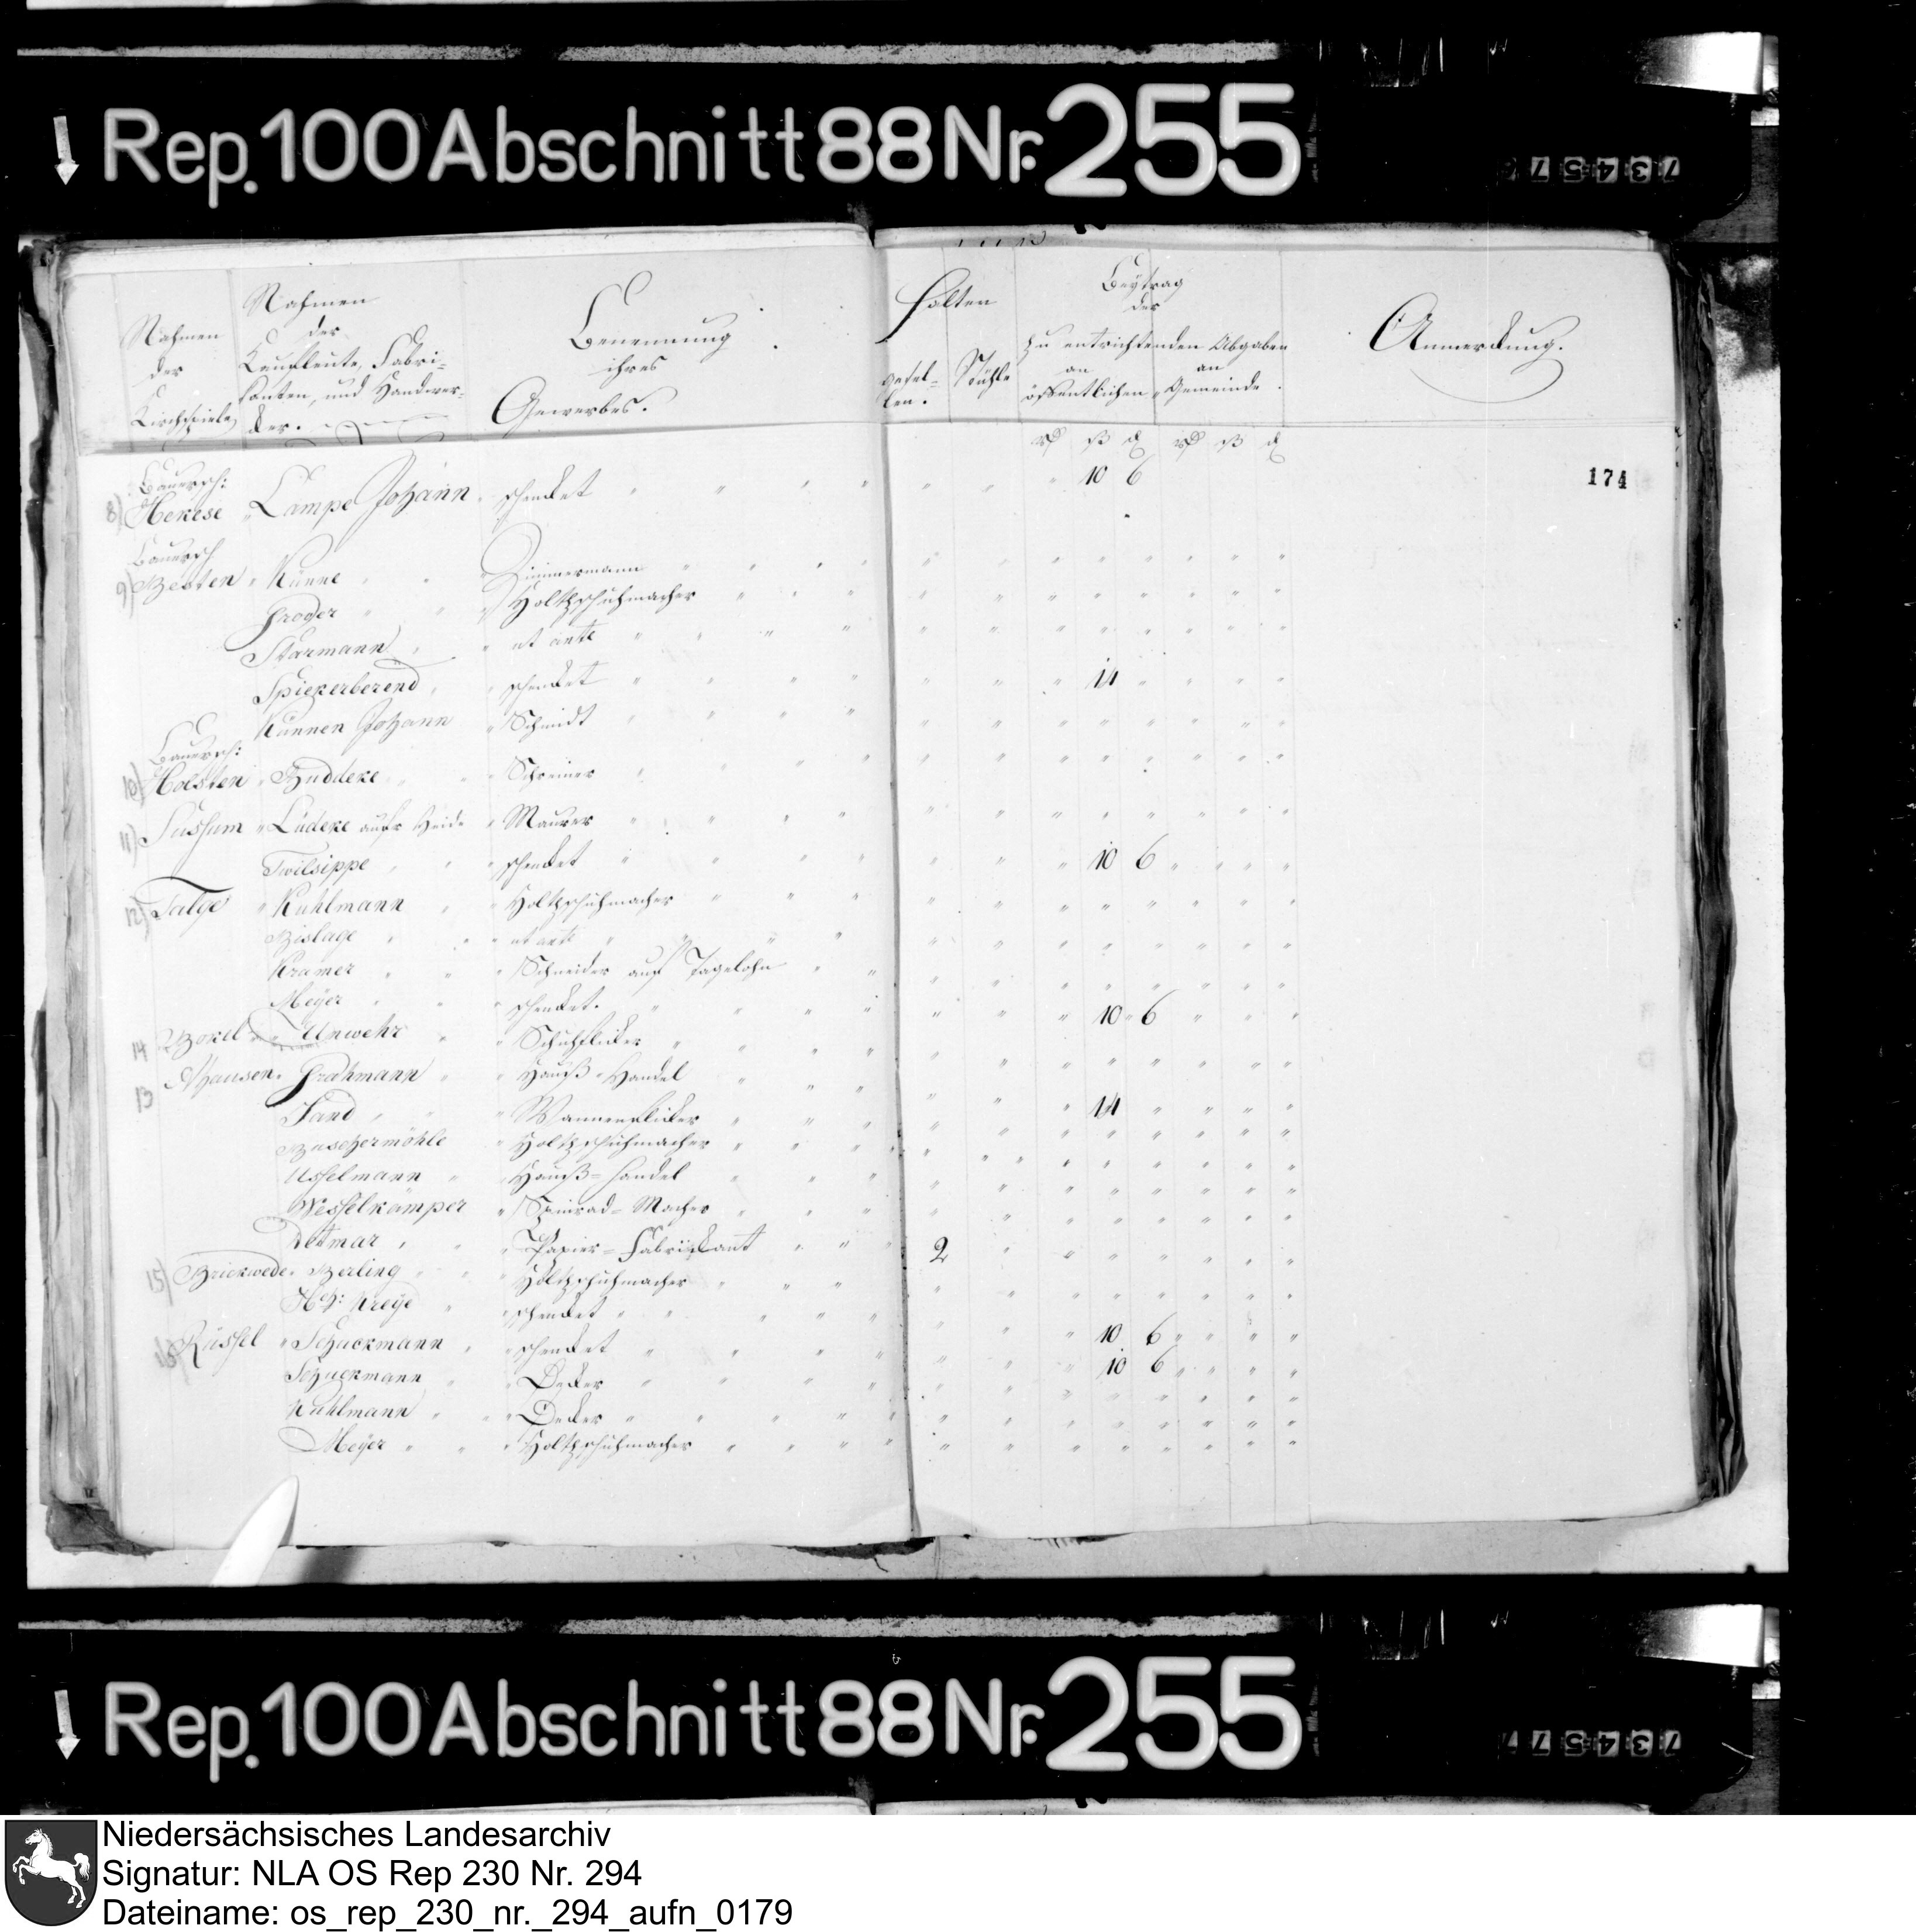 Rep. 100 Abschnitt 88 Nr. 255
734577
Nahmen der Kirchspiele
Nahmen der Kaufleute, Fabrikanten, und Handwerker.
Benennung ihres Gewerbes.
Halten
Gesellen. Stühle
Beytrag der zu entrichtenden Abgaben
an öffentlichen an Gemeinde
Anmerckung.
rth ß d rth ß d
174
Bauersch:
8) Hekese " Lampe Johann " schencket " 10 6
Bauersch
9) Besten " Künne " Zimmermann
Holtzschuhmacher
Starmann " ut ante
Spiekerberend " schencket " 14
Künnen Johann " Schmidt
Bauersch:
10) Holsten " Buddeke " Schreiner
11) Sussum " Lüdeke aufr Heide " Maurer
Twilsippe " schencket " 10 6
12) Talge " Kuhlmann " Holtzschuhmacher
Bislage " ut ante
Kramer " Schneider auf Tagelohn
Meÿer " schencket. " 10 6
14 Bokel " Unwehr " Schuhflicker
13 Ahausen " Grahmann " Hauß-Handel
Sand " Wannenflicker " 14
Buschermöhle " Holtzschuhmacher
Usselmann " Hauß=handel
Wesselkämper " Spinrad=Macher
Detmar " Papier=Fabrickant " 2
15) Brickwede " Berling " Holtzschuhmacher
Kreÿe " schencket " 10 6
16) Rüssel " Schuckmann " schencket " 10 6
Schuckmann " Decker
Kuhlmann " Decker
Meÿer " Holtzschuhmacher
Rep. 100 Abschnitt 88 Nr. 255
734577
Niedersächsisches Landesarchiv
Signatur: NLA OS Rep 230 Nr. 294
Dateiname: os_rep_230_nr._294_aufn_0179